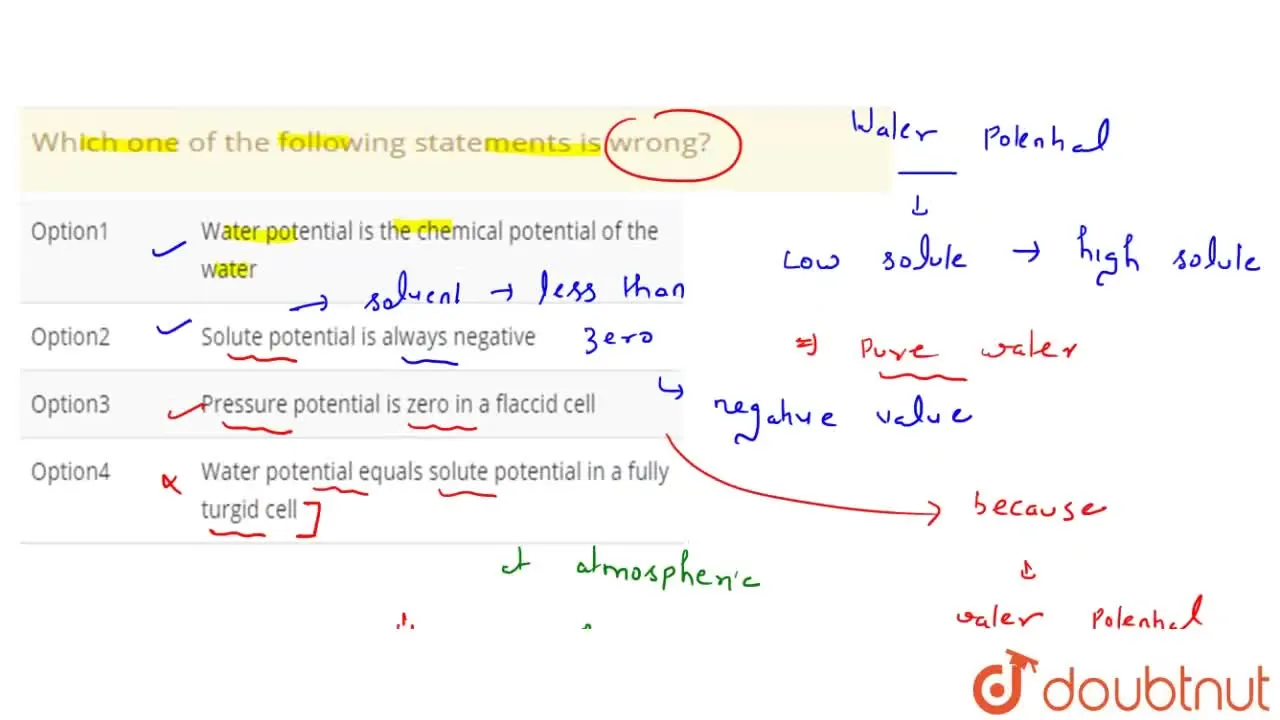 Which one of the following statements is wrong?
Option1 Water potential is the chemical potential of the
water
Option2 Solute potential is always negative
Option3 Pressure potential is zero in a flaccid cell
Option4 Water potential equals solute potential in a fully
turgid cell
→ solvent → less than
zero
↳ negative value
Water Potential
↓
Low solute → high solute
⇒ Pure water
→ because
↓
water Potential
at atmospheric
doubtnut